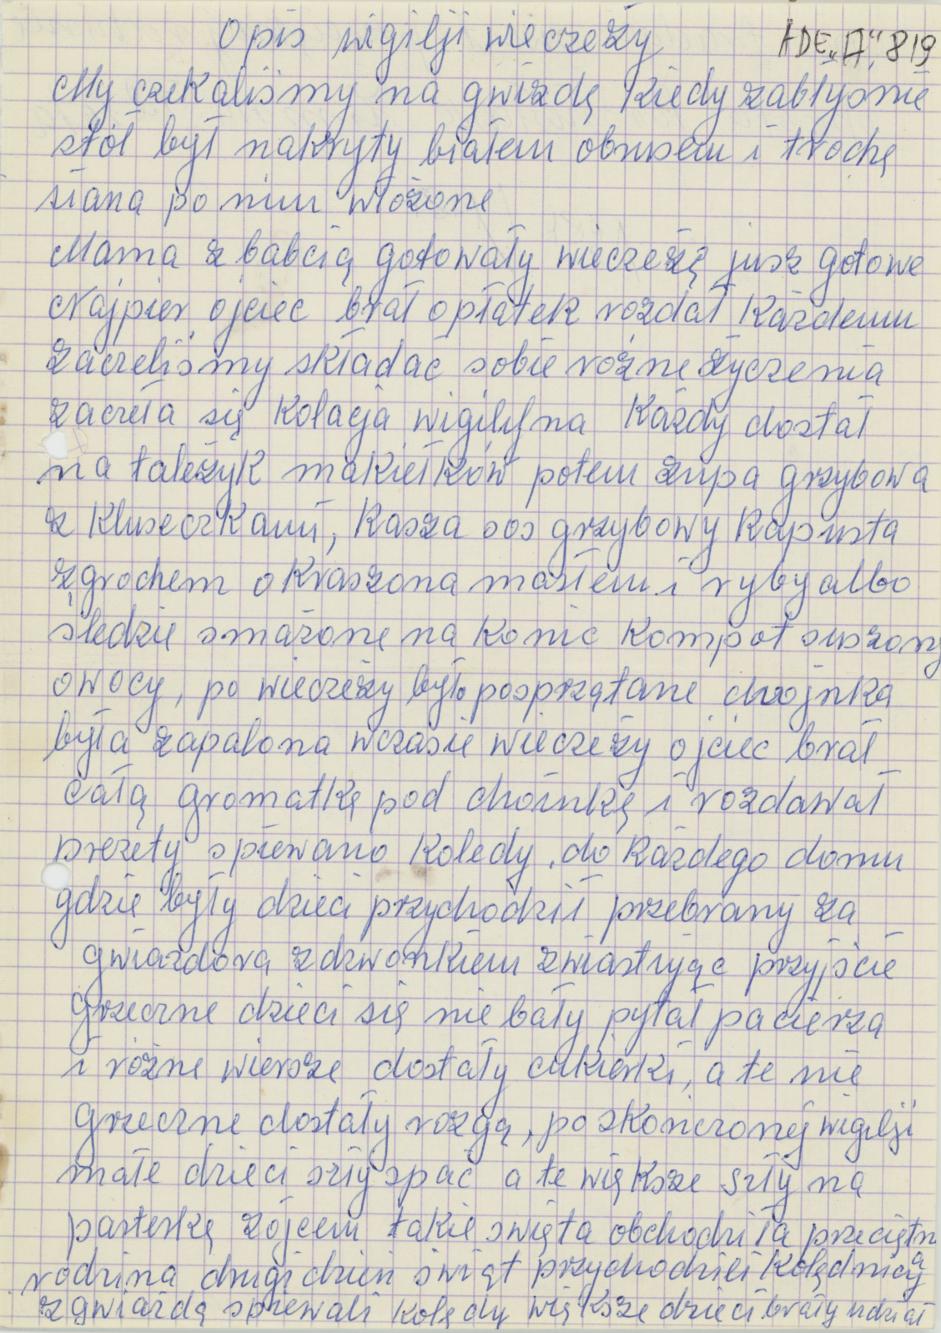 Opis wigilji wieczeży
ADE „A" 819
My czekaliśmy na gwizdę kiedy zabłyśnie
stół był nakryty białem obrusem i trochę
siana po nim włożone
Mama z babcią gotowały wieczeżą jusz gotowe
Najpier ojciec brał opłatek rozdał każdemu
zaczeliśmy składać sobie różne życzenia
zaczeła się kolacja wigilyjna Każdy dostał
na tależyk makiełków potem zupa grzybowa
z kluseczkami, kasza sos grzybowy kapusta
z grochem okraszona masłem i ryby albo
śledzie smażone na konic kompot suszony
owocy, po wieczeży było posprzątane chojnka
była zapalona wczasie wieczeży ojciec brał
całą gromatkę pod choinkę i rozdawał
prezety spiewano kolędy. do każdego domu
gdzie były dzieci przychodził przebrany za
gwiazdora zdzwonkiem zwiastrując przyjście
grzeczne dzieci się nie bały pytał pacierza
i różne wiersze dostały cukierki, a te nie
grzeczne dostały rozgą, po skończonej wigilji
małe dzieci szły spać a te większe szły na
pasterkę zojcem takie swięta obchodziła przeciętna
rodzina drugi dzień świąt przychodzili kolędnicy
z gwiazdą spiewali kolędy większe dzieci brały udział